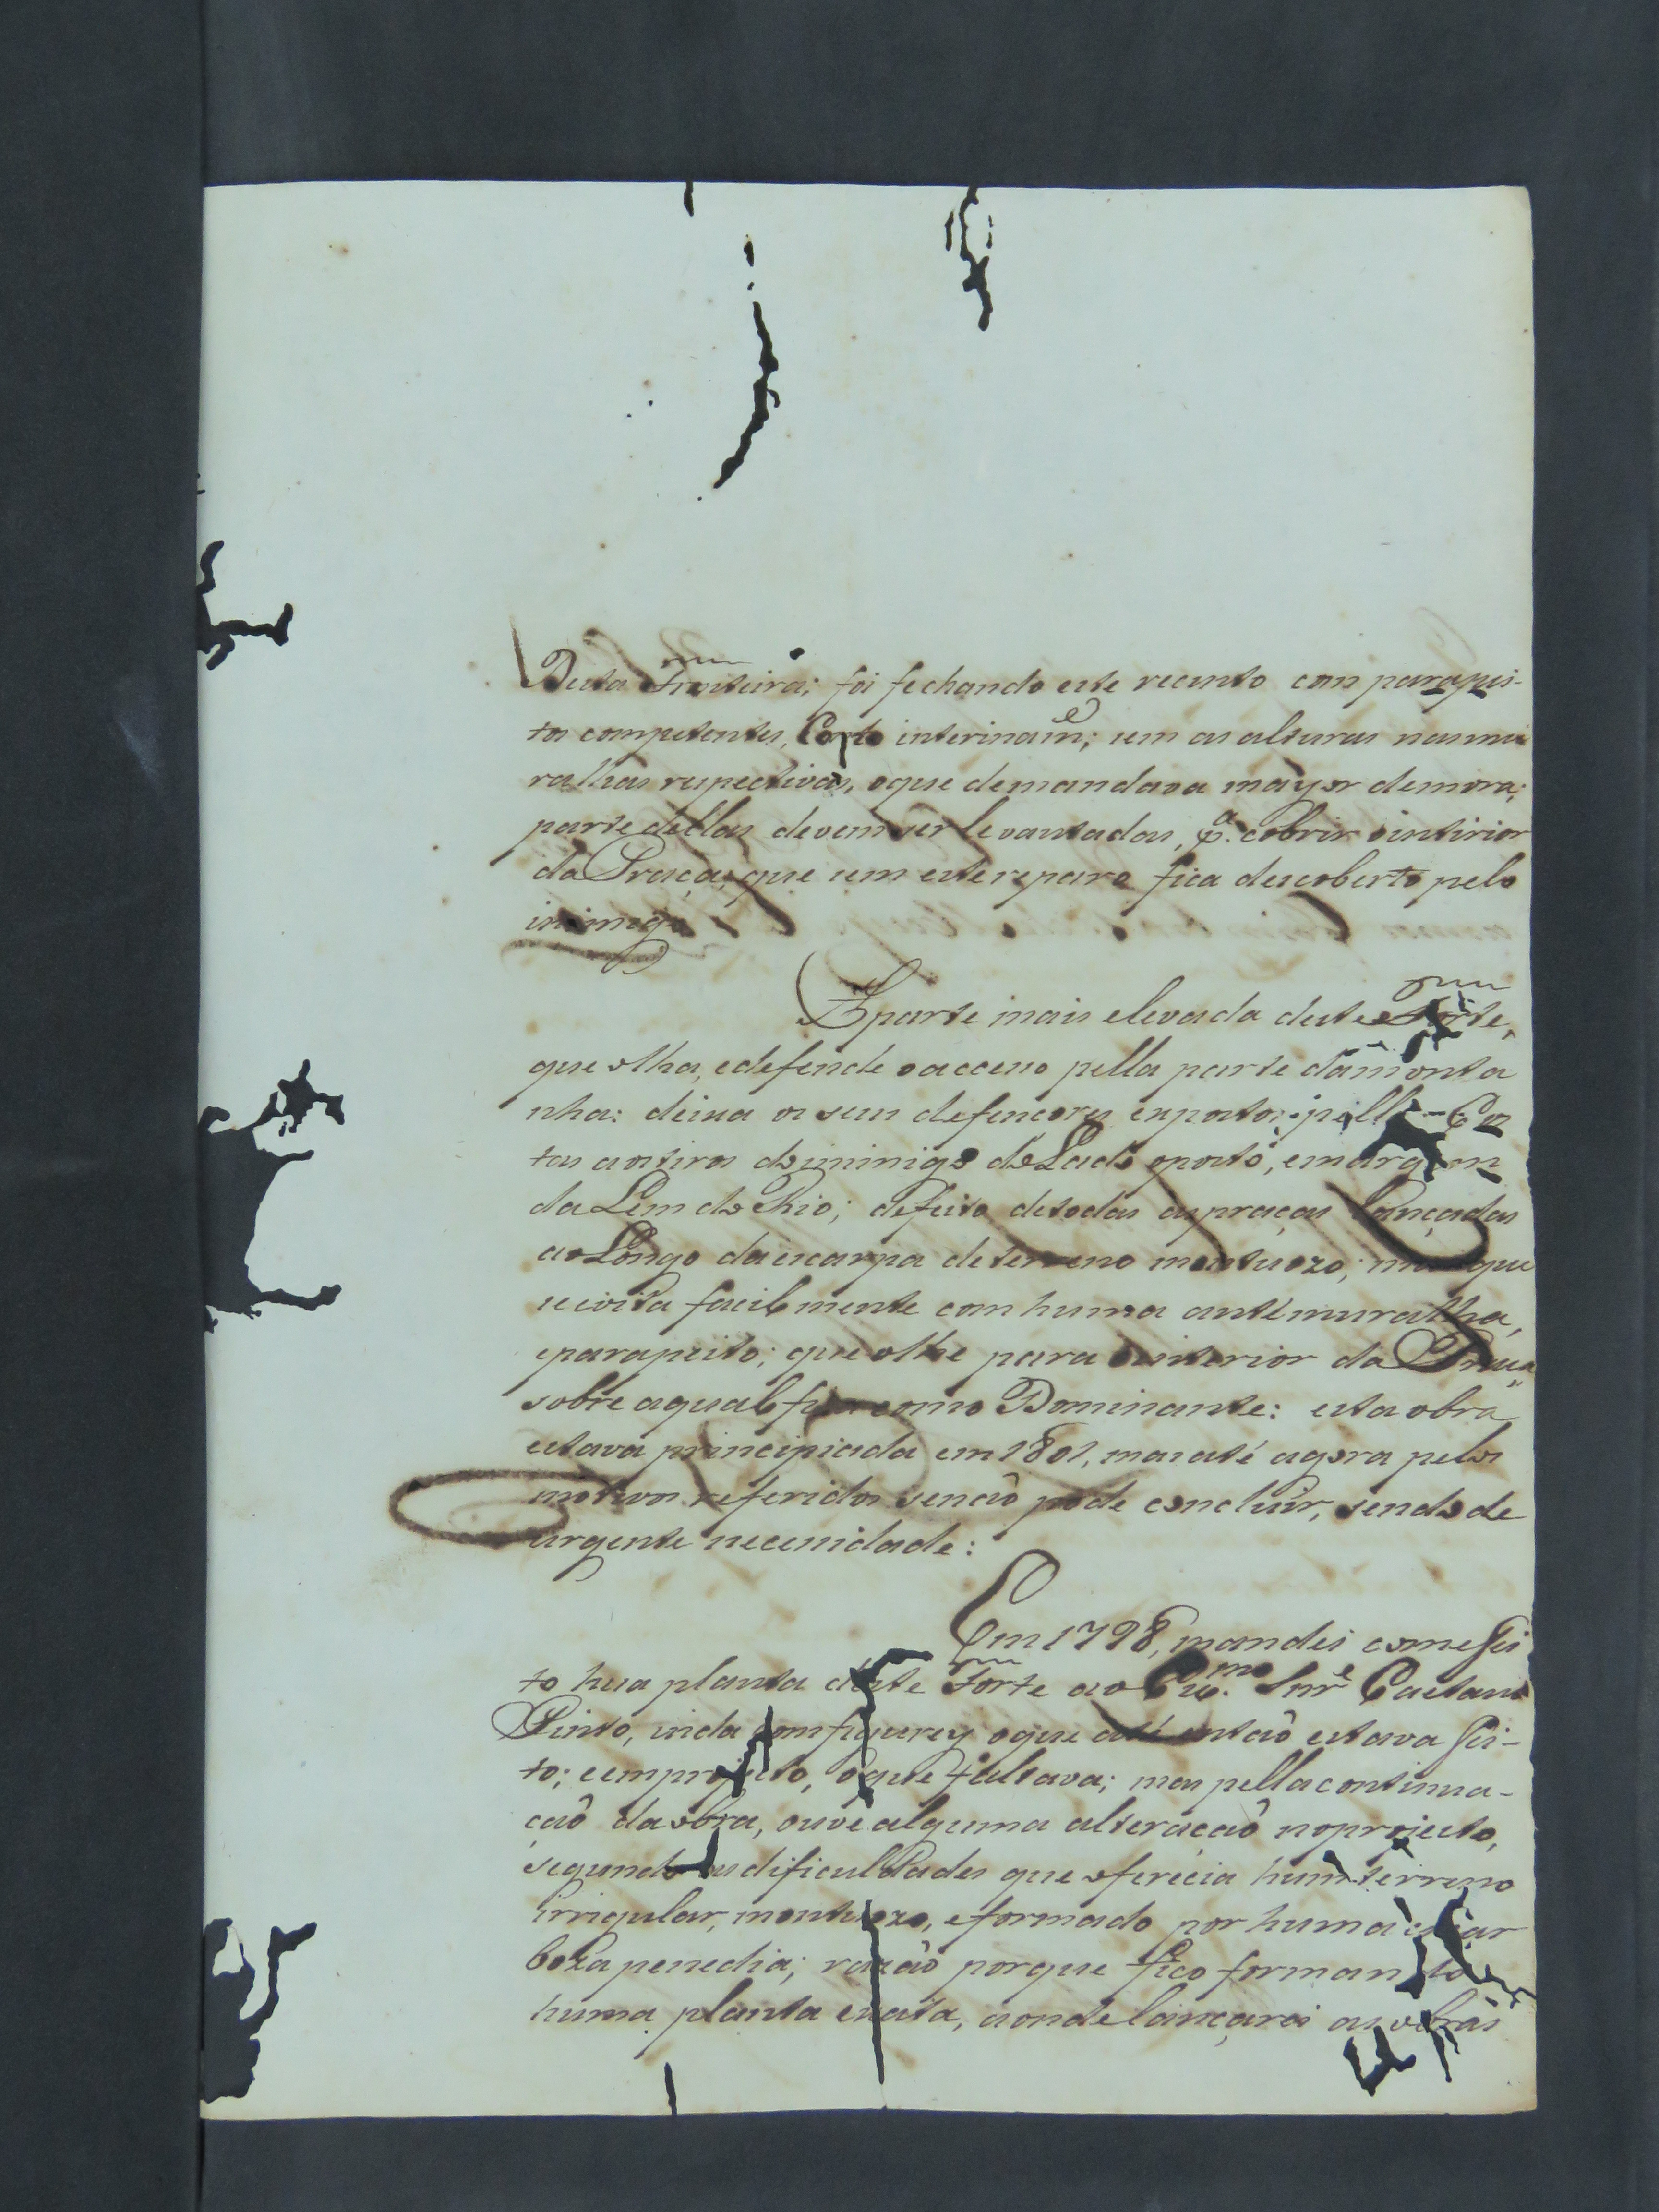 Desta Fronteira; foi fechando este recinto com parapei-
tos competentes, interinam.e; sem as alturas nas mu
ralhas respectivas, oque demandava mayor demora;
parte dellas devem ser levantadas, p.a cobrir ointirior
da Praça, que sem este reparo fica descoberto pelo
inimigo
A parte mais elevada deste Forte,
que olha, edefende oacceso pella parte damonta
nha: deixa os seus defencores expostos pellas Cos
tas aostiros do inimigo do Lado oposto, emargem
da Lem do Rio; defeito detodas aspraças Lançadas
ao Longo da escarpa deterreno montuozo; mas que
seevita facilmente com huma antémuralha,
eparapeito; que olhe para ointerior da Praça
sobre aqual fica como Dominante: esta obra
estava principiada em 1801, mas até agora pelos
motivos referidos senaõ pode concluir, sendo de
urgente necessidade:
Em 1798, mandei com effei
to hua planta deste Forte ao Ex.mo Snr.e Caetano
Pinto, inda configurey oque até entaõ estava fei-
to; eemprojecto, oque faltava; mas pella continua-
çaõ da obra, ouve alguma alteraçaõ noprojecto,
segundo as dificuldades que oferecia hum terreno
irrigular, montuozo, eformado por huma escar
boza penedia; razaõ porque fico formando
huma planta exata, aonde lançarei as obras